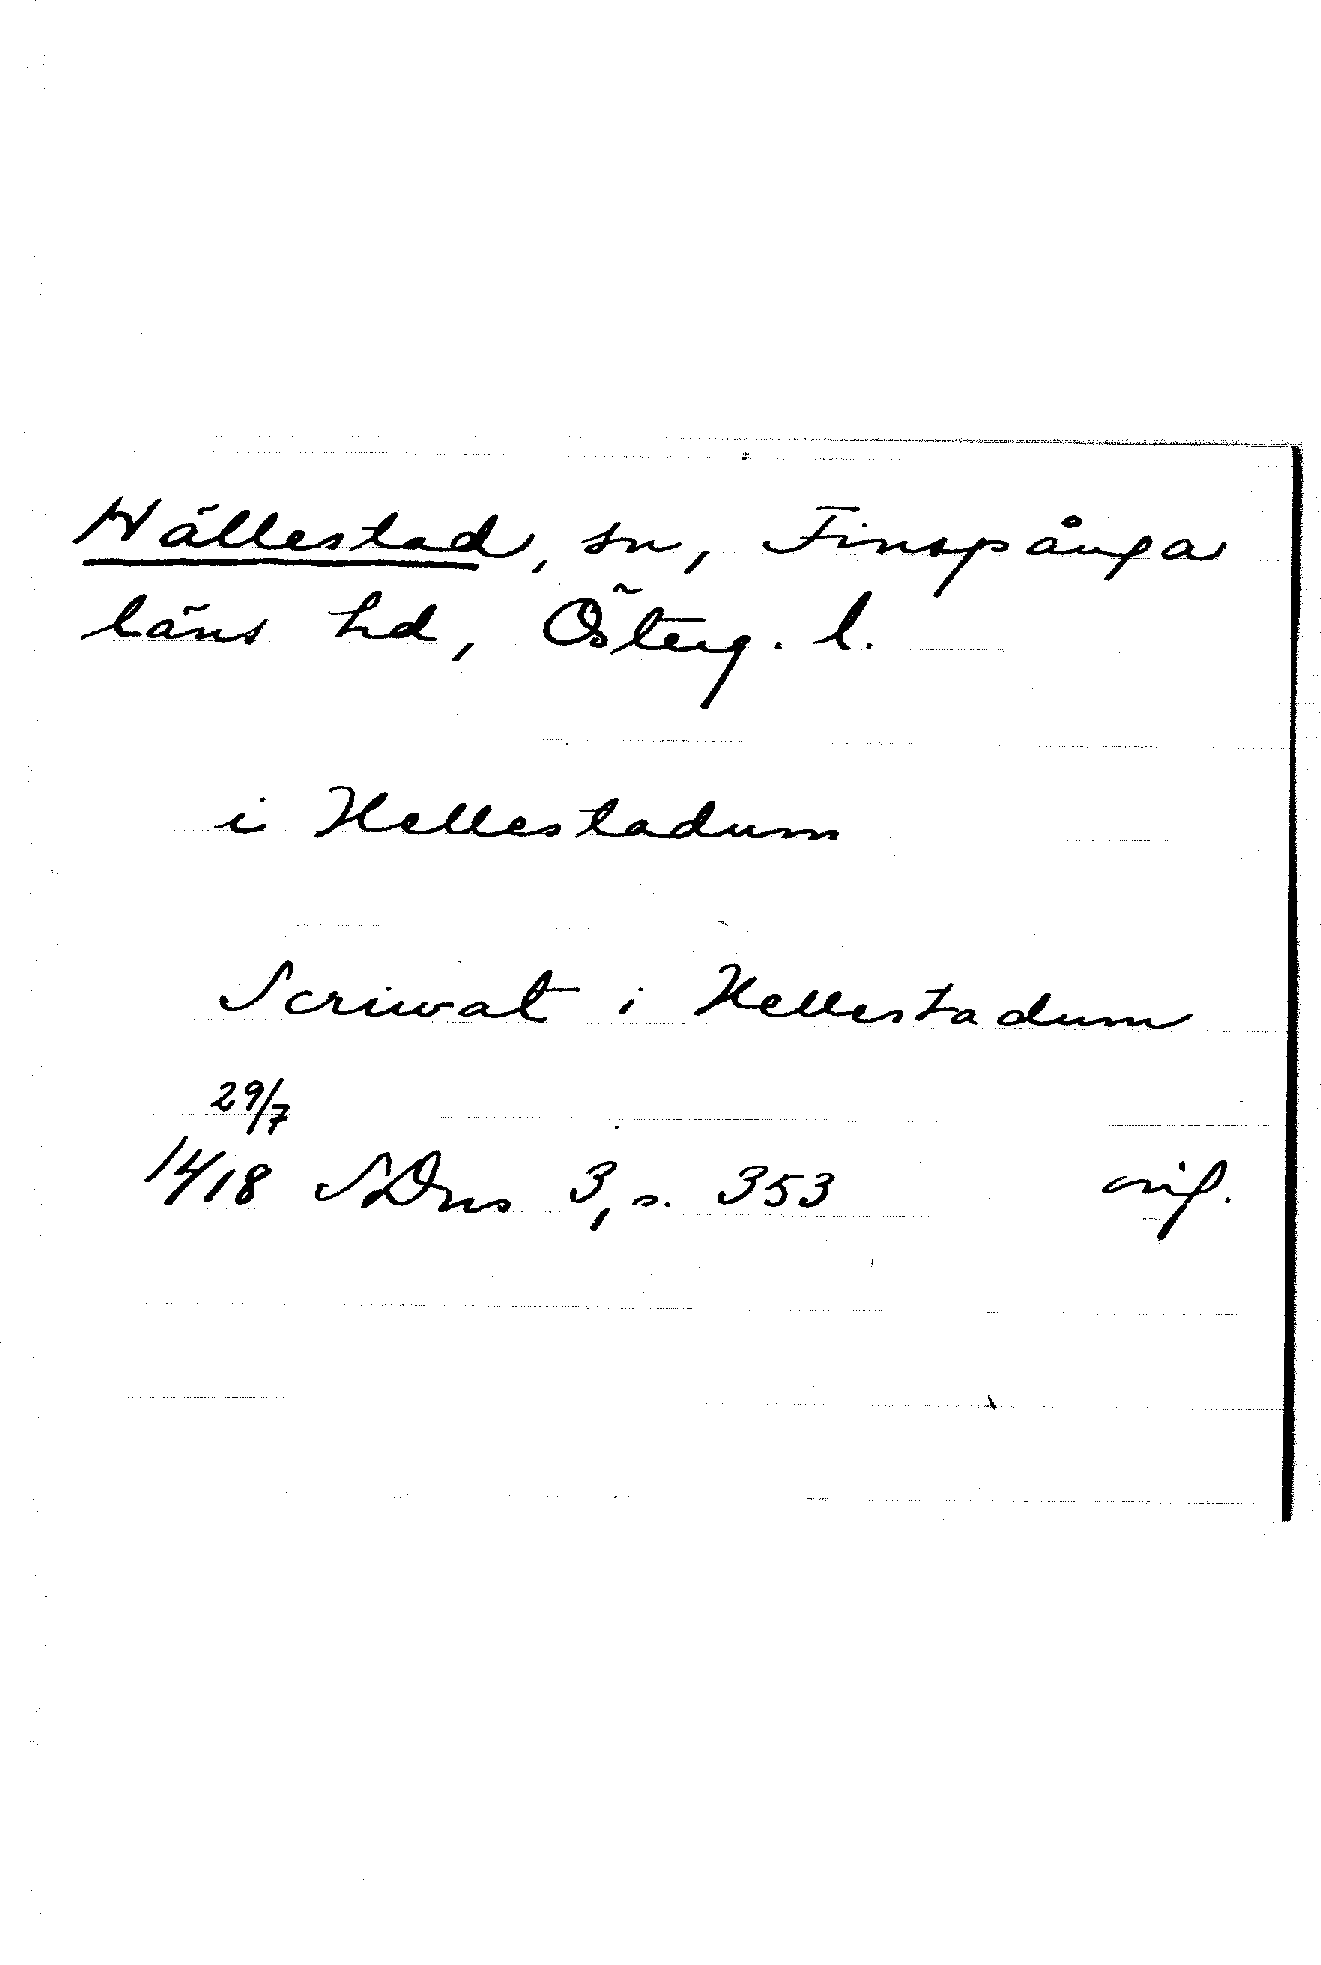 Hällestad, sn, Finspånga
läns hd, Österg. l.
i Hellestadum
Scriwat i Hellestadum
29/7
1418 SDns 3, s. 353 orig.